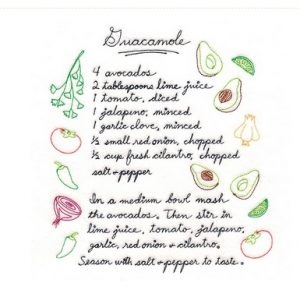 Guacamole
4 avocados
2 tablespoons lime juice
1 tomato, diced
1 jalapeno, minced
1 garlic clove, minced
½ small red onion, chopped
½ cup fresh cilantro, chopped
salt & pepper
In a medium bowl mash
the avocados. Then stir in
lime juice, tomato, jalapeno,
garlic, red onion & cilantro.
Season with salt & pepper to taste.